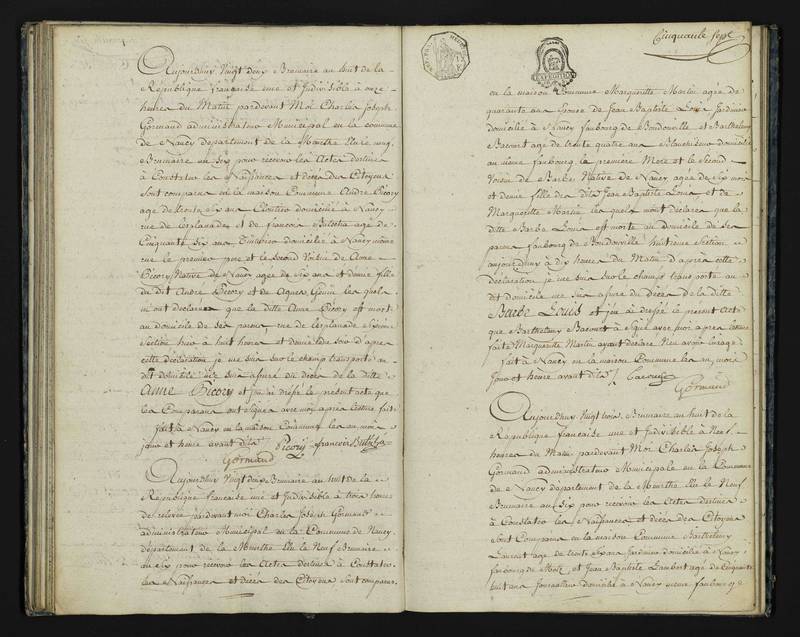 Aujourdhuy Vingt deux Brumaire an huit de la
République française une et Indivisible à onze
heures du Matin pardevant Moi Charles Joseph
Gormand administrateur Municipal en la commune
de Nancy département de la Meurthe Elu le neuf
Brumaire an Six pour recevoir les Actes destinés
à Constater les Naissances et décès des Citoyens
Sont comparus en la maison Commune André Picory
age de trente Six ans Cloutier domicilié à Nancy
rue de lesplanade et de francois age de
Cinquante Six ans domicilié à Nancy même
rue le premier pere et le Second Voisin de Anne
Picory Native de Nancy agée de Six ans et demie fille
du dit André Picory et de Agnes les quels
m'ont declarés que la ditte Anne Picory est morte
au domicile de ses parens rue de lesplanade
Section hier à huit heures et demie du soir d'apres
cette déclaration je me suis sur le champ transporté au
dit domicile me suis assuré du décès de la ditte
Anne Picory et j'en ai dréssé le présent acte que
les Comparans ont signés avec moy après lecture fait
fait à Nancy en la maison Commune les an mois
jour et heure avant dits Picory francois
Gormand
Aujourdhuy Vingt deux Brumaire an huit de la
République francaise une et Indivisible à trois heures
de relevée pardevant moi Charles Joseph Gormand
administrateur Municipal en la Commune de Nancy
département de la Meurthe Elu le Neuf Brumaire
an Six pour recevoir les Actes destinés à Constater
les Naissances et décès des Citoyens Sont comparus
Cinquante Sept
en la maison Commune Marguerite Martin agée de
quarante ans Epouse de Jean Baptiste Louis Jardinier
domicilié à Nancy faubourg de Boudonville et Barthelemy
Bacourt age de trente quatre ans Blanchisseur domicilié
au même faubourg la première Mere et le Second
Voisin de Barbe Native de Nancy agée de Six mois
et demie fille des dits Jean Baptiste Louis et de
Marguerite Martin les quels m'ont déclarés que la
ditte Barbe Louis est morte au domicile de Ses
parens faubourg de Boudonville huitieme Section
aujourdhuy à dix heures du Matin d'après cette
déclaration je me suis sur le champ transporté au
dit domicile me suis assuré du Décès de la ditte
Barbe Louis et j'en ai dréssé le présent acte
que Barthelemy Bacourt a signé avec moi apres lecture
faite Marguerite Martin ayant déclaré Neu avoir l'usage
fait à Nancy en la maison Commune les an mois
jour et heure avant dits
Gormand
Aujourdhuy Vingt trois Brumaire an huit de la
République francaise une et Indivisible à Neuf
heures du Matin pardevant Moi Charles Joseph
Gormand administrateur Municipale en la Commune
de Nancy département de la Meurthe Elu le Neuf
Brumaire an Six pour recevoir les Actes destinés
à Constater les Naissances et décès des Citoyens
Sont Comparus en la maison Commune Barthelemy
Laurent age de trente ans Jardinier domicilié à Nancy
faubourg de et Jean Baptiste Lambert agé de Cinquante
huit ans Journallier domicilié à Nancy même faubourg